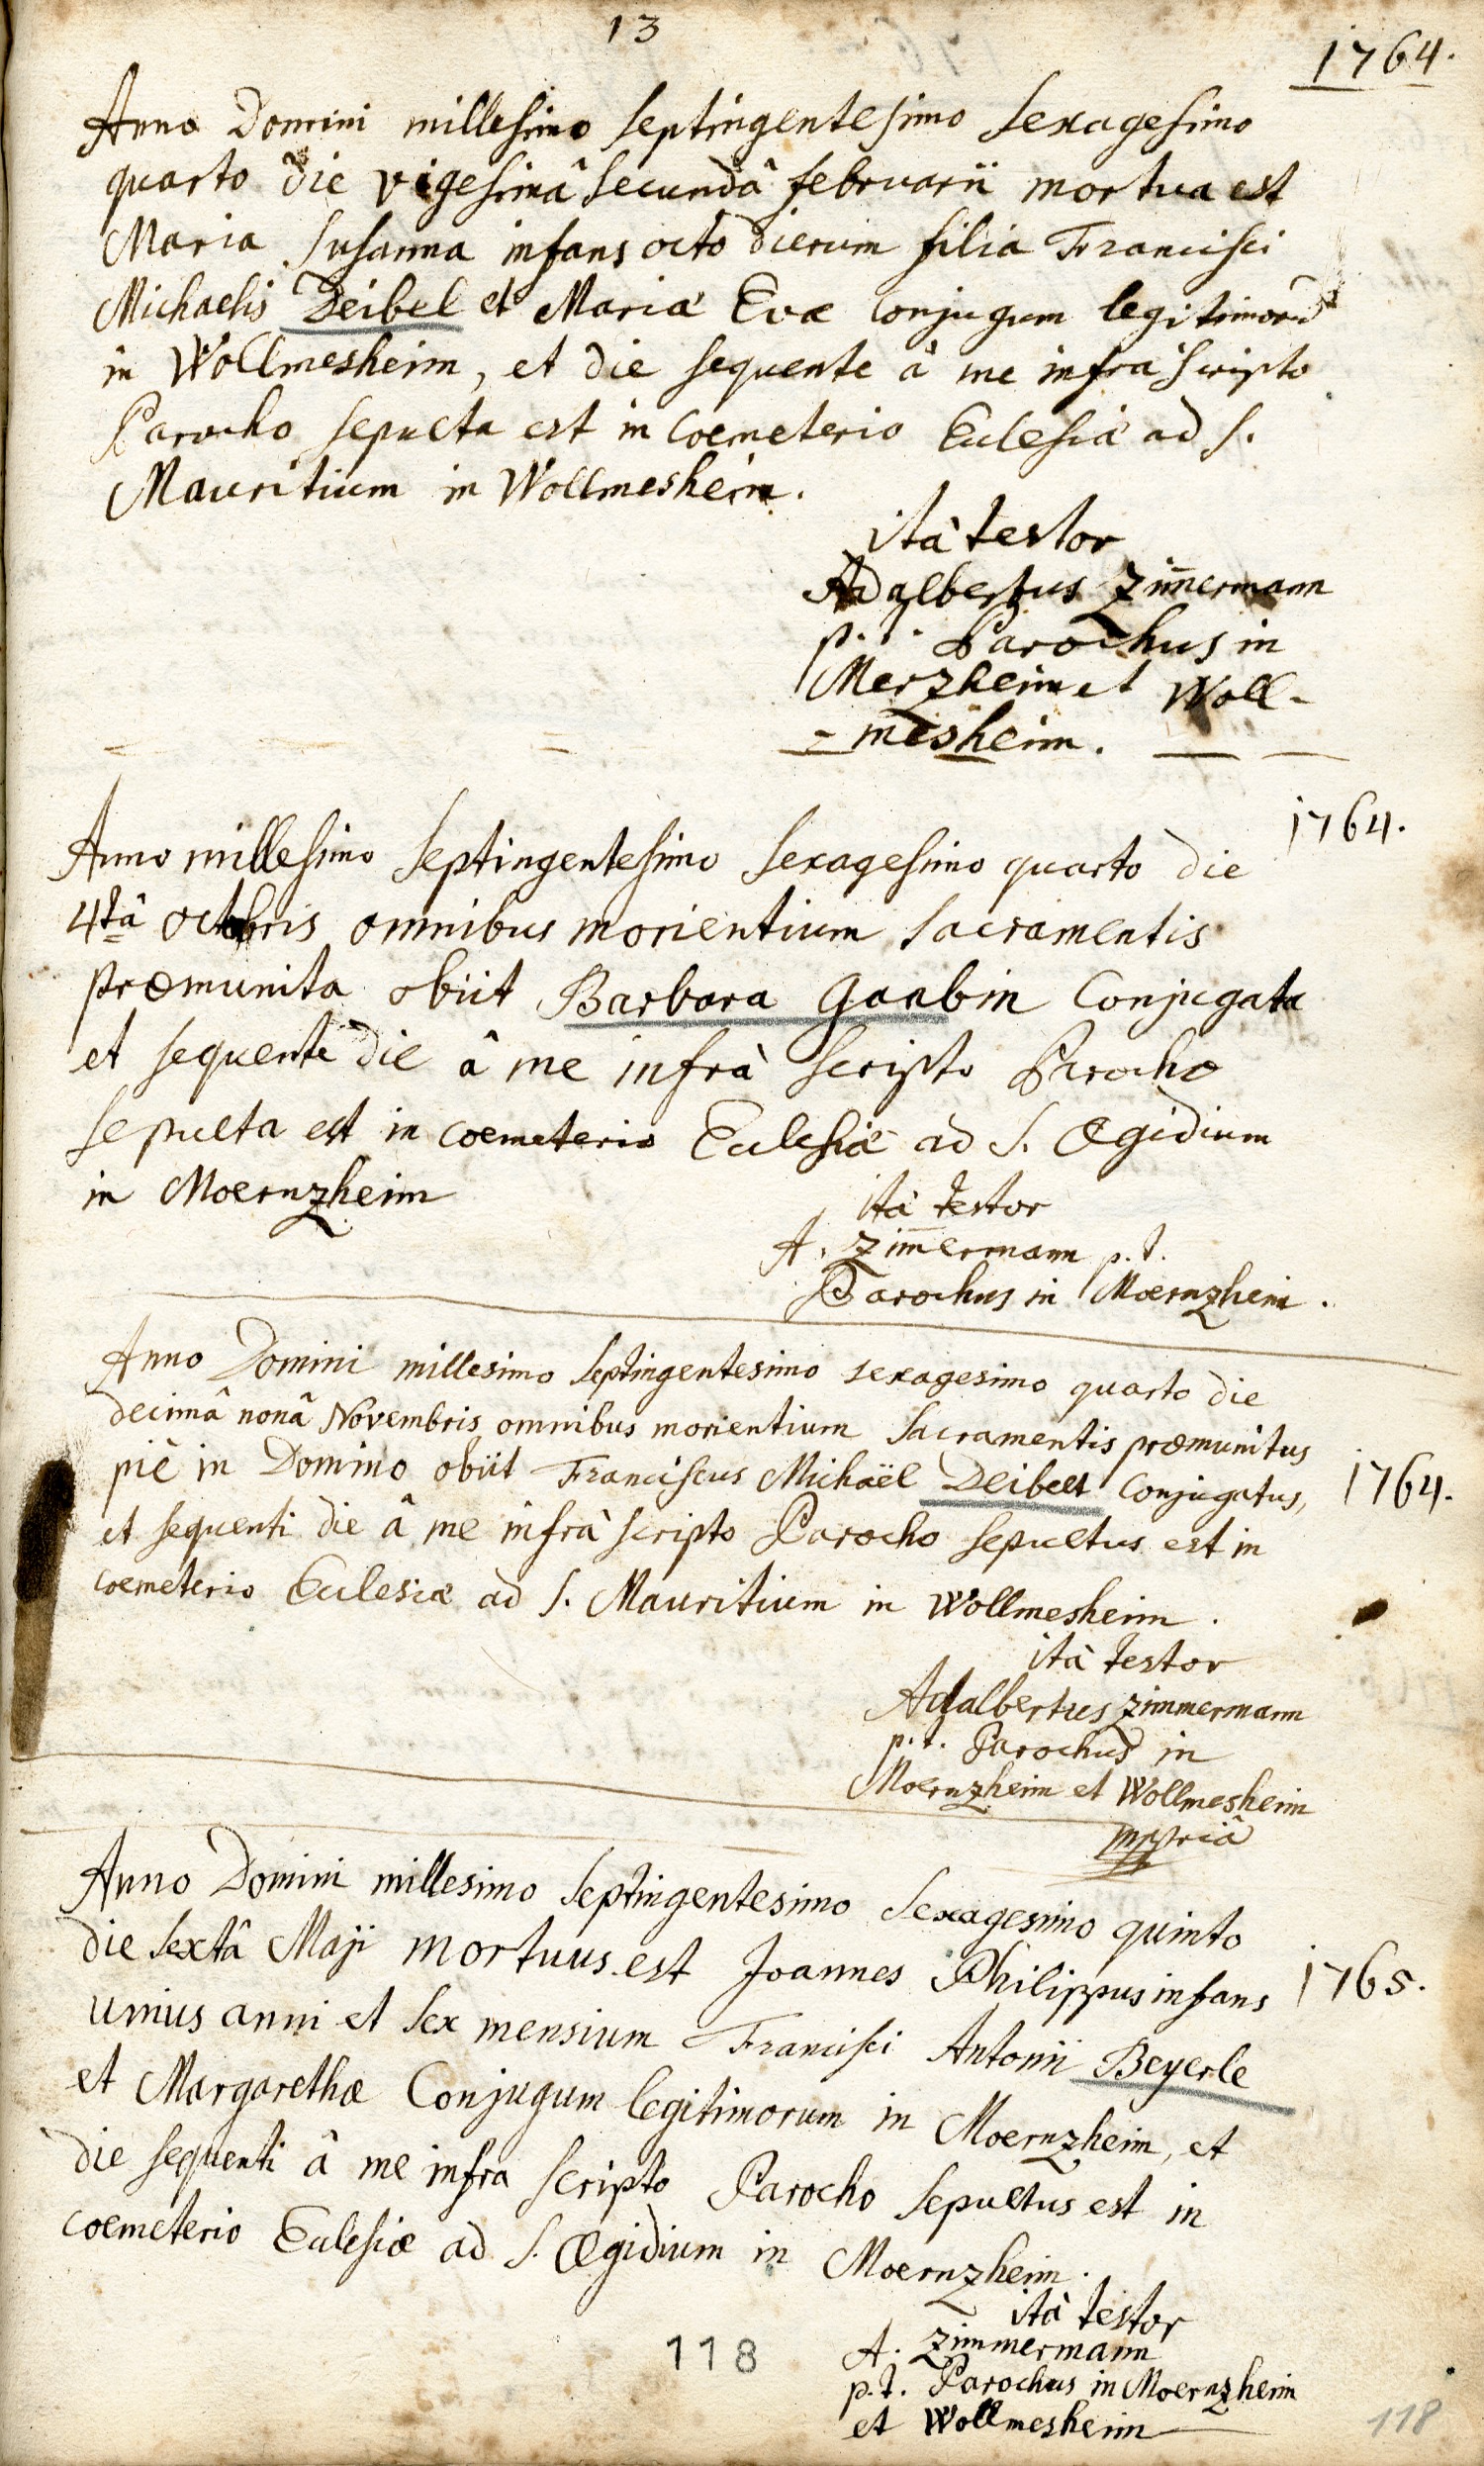 13
1764.
Anno Domini millesimo septingentesimo sexagesimo
quarto die vigesimâ secundâ februarii mortua est
Maria Susanna infans octo dierum filia Francisci
Michaelis Deibel et Mariæ Evæ conjugum legitimorū
in Wollmesheim, et die sequente â me infra scripto
Parocho sepulta est in coemeterio Eclesiæ ad S.
Mauritium in Wollmesheim.
ità testor
Adalbertus Zim̄ermann
p. t. Parochus in
Merzheim et Woll-
-mesheim.
1764.
Anno millesimo septingentesimo sexagesimo quarto die
4tâ octobris omnibus morientium sacramentis
præmunita obiit Barbara Gaabin Conjugata
et sequente die â me infrà scripto Parocho
sepulta est in coemeterio Eclesiæ ad S. Œgidium
in Moernzheim
ità testor
A. Zim̄ermann p. t.
Parochus in Moernzheim.
Anno Domini millesimo septingentesimo sexagesimo quarto die
decimâ nonâ Novembris omnibus morientium Sacramentis præmunitus
piè in Domino obiit Franciscus Michaël Deibelt Conjugatus,
1764.
et sequenti die â me infrà scripto Parocho sepultus est in
coemeterio Eclesiæ ad S. Mauritium in Wollmesheim.
ità testor
Adalbertus Zimmermann
p. t. Parochus in
Moernzheim et Wollmesheim
mppriâ
Anno Domini millesimo septingentesimo sexagesimo quinto
die sextâ Maji mortuus est Joannes Philippus infans
1765.
unius anni et sex mensium Francisci Antonii Beyerle
et Margarethæ Conjugum legitimorum in Moernzheim, et
die sequenti â me infra scripto Parocho sepultus est in
coemeterio Eclesiæ ad S. Œgidium in Moernzheim.
ità testor
A. Zimmermann
p. t. Parochus in Moernzheim
et Wollmesheim
118
118